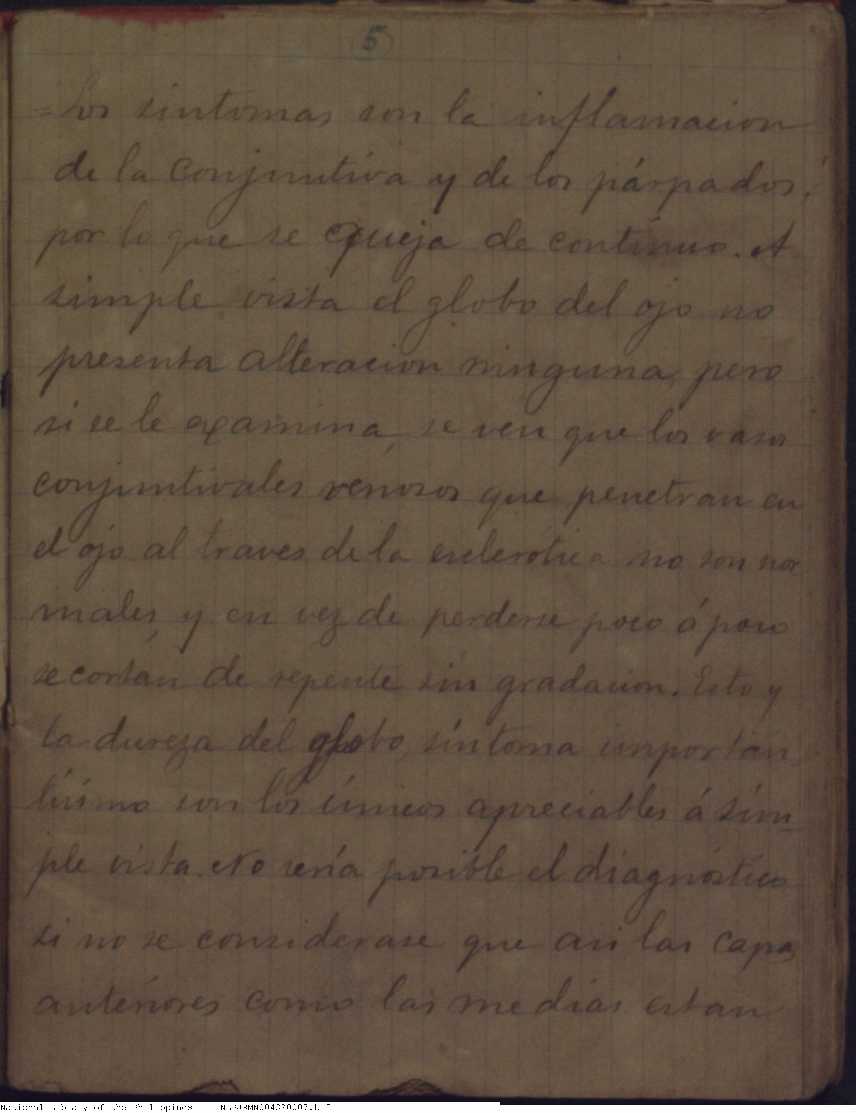 5
Los sintomas son la inflamacion
de la conjuntiva y de los párpados,
por lo que se queja de contínuo. A
simple vista el globo del ojo no
presenta alteracion ninguna, pero
si se le examina, se ven que los vasos
conjuntivales venosos que penetran en
el ojo al traves de la esclerótica no son nor
males, y en vez de perderse poco á poco
se cortan de repente sin gradacion. Esto y
la dureza del globo, síntoma importan
tísimo son los únicos apreciables á sim-
ple vista. No sería posible el diagnóstico
si no se considerase que asi las capas
anteriores como las medias estan
National Library of the Philippines